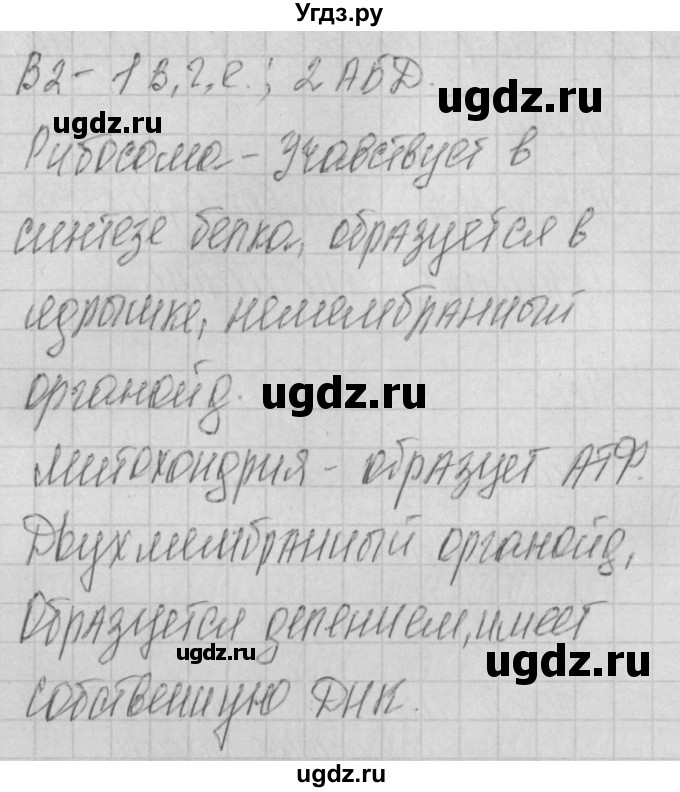 Угдз.ру
В2 - 1 В, Г, Е.; 2 АБД.
ugdz.ru
ugdz.ru
Рибосома - Учавствует в
синтезе белка, образуется в
ядрышке, немембранный
органойд.
ugdz.ru
митохондрия - образует АТФ.
Двухмембранный органойд,
Образуется делением, имеет
ugdz.ru
ugdz.ru
собственную ДНК.
ugdz.ru